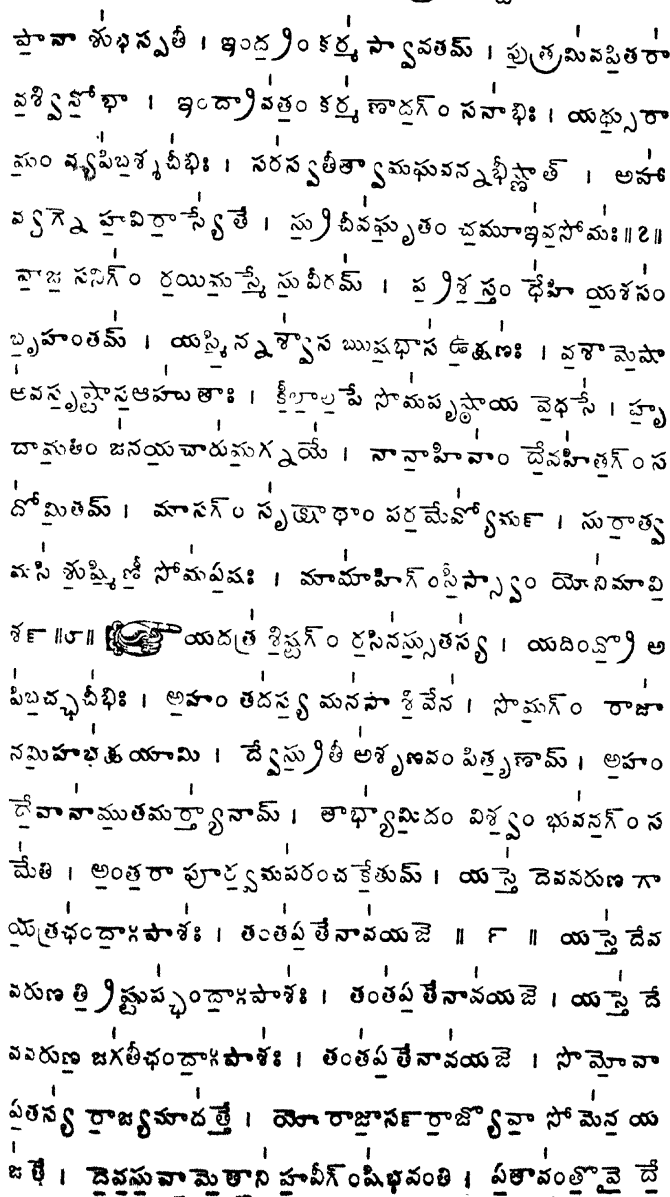 పానా శుభస్పతీ । ఇంద్రిం కర్మ స్వావతమ్ । పుత్రమివపితరా
వశ్వినోభా । ఇంద్రావత్రం కర్మ ణాదగ్ం సనాభిః । యథ్సురా
మం వ్యపిబశ్శచీభిః । సరస్వతీత్వా మఘవన్నభీష్ణాత్ । అహా
వ్యగ్నె హవిరాస్యే తే । స్రుచీవఘృతం చమూఇవసోమః॥౭॥
వాజ సనిగ్ం రయిమస్మే సువీరమ్ । ప్రశస్తం ధేహి యశసం
బృహంతమ్ । యస్మిన్నశ్వాస ఋషభాస ఉక్షణః । వశా మెషా
అవసృష్టాసఆహుతాః । కీలాలపే సోమపృష్ఠాయ వెధసే । హృ
దామతిం జనయచారుమగ్నయే । నానాహివాం దేవహితగ్ం స
దోమితమ్ । మాసగ్ం సృక్షాథాం పరమేవ్యోమ౯ । సురాత్వ
మసి శుష్మిణీ సోమఏషః । మామాహిగ్ంసీస్స్వాం యోనిమావి
శ౯ ॥౮॥ యదత్ర శిష్టగ్ం రసినస్సుతస్య । యదింద్రో అ
పిబచ్ఛచీభిః । అహం తదస్య మనసా శివేన । సోమగ్ం రాజా
నమిహభక్షయామి । ద్వేస్రుతీ అశృణవం పితృణామ్ । అహం
దేవానాముతమర్త్యానామ్ । తాభ్యామిదం విశ్వం భువనగ్ం స
మేతి । అంతరా పూర్వమపరంచ కేతుమ్ । యస్తె దెవవరుణ గా
యత్రఛందాఽపాశః । తంతఏతేనావయజె ॥ ౯ ॥ యస్తె దేవ
వరుణ త్రిష్టుప్ఛందాఽపాశః । తంతఏతేనావయజె । యస్తె దే
వవరుణ జగతీఛందాఽపాశః । తంతఏతేనావయజె । సోమోవా
ఏతస్య రాజ్యమాదత్తే । యో రాజాస౯ రాజ్యోవా సోమేన య
జతే । దెవసువామెతాని హవీగ్ంషిభవంతి । ఏతావంతొవై దే